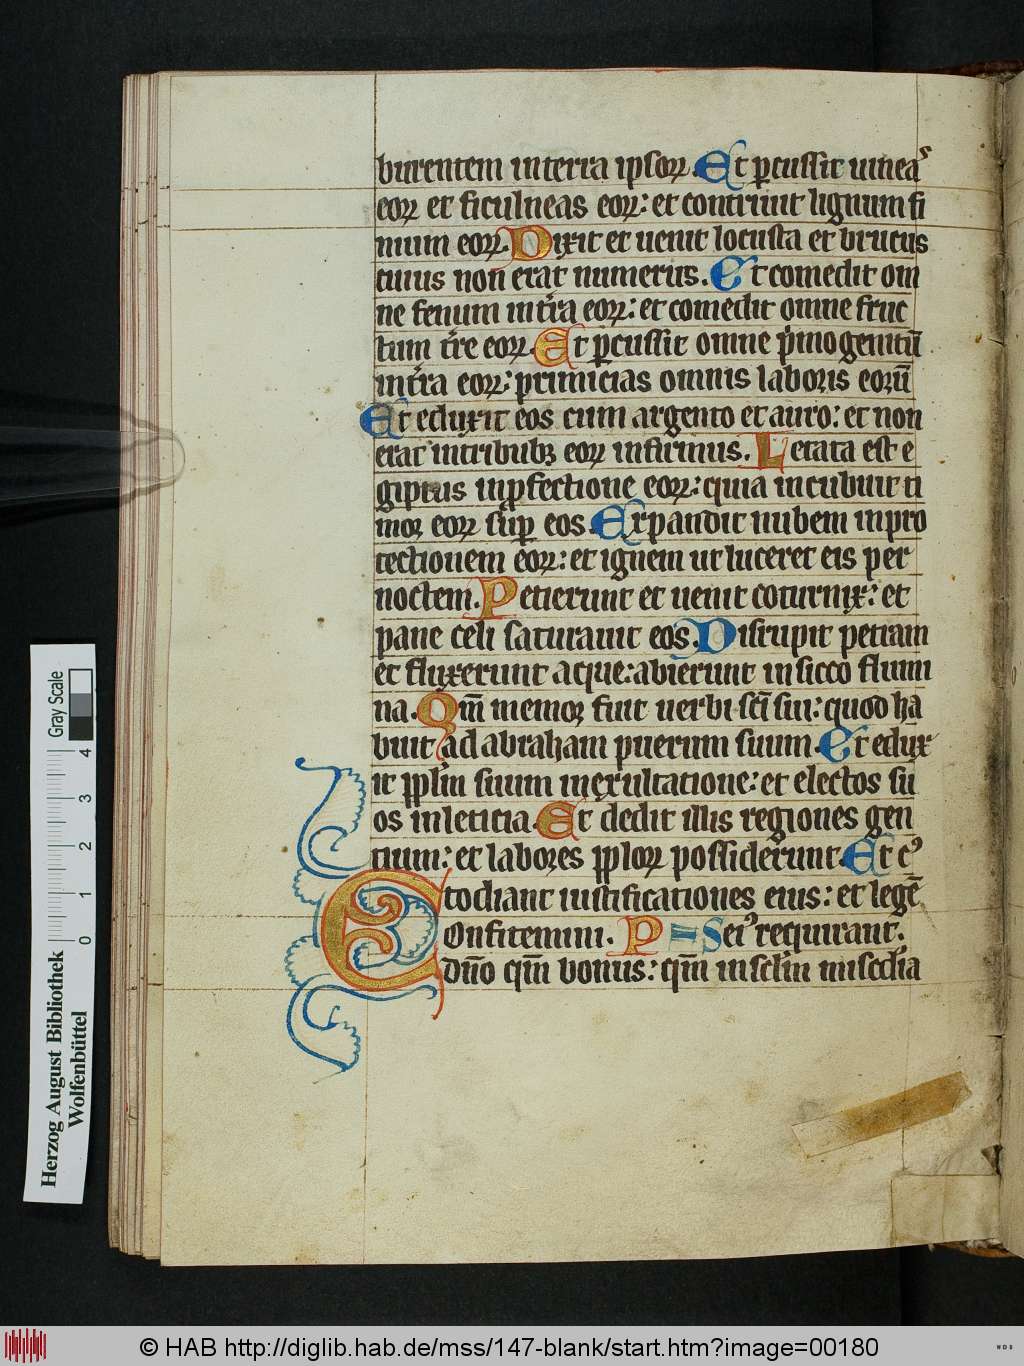 burentem in terra ipsoꝝ. Et ꝑcussit uineas
eoꝝ et ficulneas eoꝝ: et contriuit lignum fi
nium eoꝝ. Dixit et uenit locusta et brucus
cuius non erat numerus. Et comedit om
ne fenum in tr̄ra eoꝝ: et comedit omne fruc
tum tr̄re eoꝝ. Et ꝑcussit omne pͥmogenitū
in tr̄ra eoꝝ: primicias omnis laboris eorū
Et eduxit eos cum argento et auro: et non
erat in tribubꝫ eoꝝ infirmus. Letata est e
giptus in ꝓfectione eoꝝ: quia incubuit ti
mor eoꝝ suꝑ eos. Expandit nubem in pro
tectionem eoꝝ: et ignem ut luceret eis per
noctem. Petierunt et uenit coturnix: et
pane celi saturauit eos. Disrupit petram
et fluxerunt aque: abierunt in sicco flumi
na. Qm̄ memor fuit uerbi sc̄i sui: quod ha
buit ad abraham puerum suum. Et edux
it ppl̄m suum in exultatione: et electos su
os in leticia. Et dedit illis regiones gen
tium: et labores ppl̄oꝝ possiderunt. Et c᾿
todiant iustificationes eius: et legē
Confitemini. P = Sei᾿ requirant.
dn̄o qm̄ bonus: qm̄ in sc̄l̄m miscd̄ia
Gray Scale
0 1 2 3 4
Herzog August Bibliothek
Wolfenbüttel
© HAB http://diglib.hab.de/mss/147-blank/start.htm?image=00180